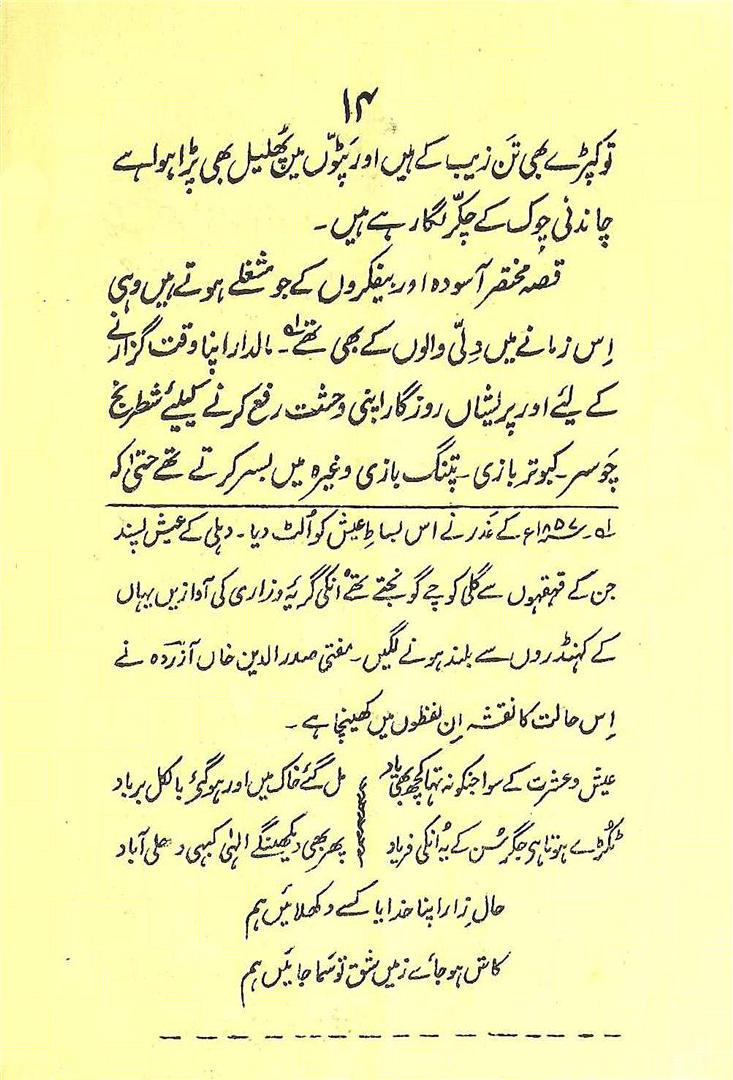 ۱۴
تو کپڑے بھی تَن زیب کے ہیں اور پَٹّوں مین پُھلیل بھی پڑا ہوا ہے
چاندنی چوک کے چکّر لگا رہے ہیں۔
قصّہ مختصر آسودہ اور بیفکروں کے جو شغلے ہوتے ہیں وہی
اِس زمانے میں دِلّی والوں کے بھی تھے ۱؎۔ مالدار اپنا وقت گزارنے
کے لیٔے اور پریشاں روزگار اپنی وحشت رفع کرنے کیلیٔے شطرنج
چَوسر۔ کبوتر بازی۔ پتنگ بازی وغیرہ میں بسر کرتے تھے حتیٰ کہ
۱؎۔ ۱۸۵۷ء کے غدر نے اس بساطِ عیش کو اُلٹ دیا۔ دہلی کے عیش پسند
جن کے قہقہوں سے گلی کوچے گونجتے تھے اُنکی گریۂ وزاری کی آوازیں یہاں
کے کہنڈروں سے بلند ہونے لگیں۔ مفتی صدر الدین خاں آزردہ نے
اِس حالت کا نقشہ اِن لفظوں میں کھینچا ہے۔
عیش و عشرت کے سوا جنکو نہ تہا کچھ بھی یاد
مل گئے خاک میں اور ہو گئی بالکل برباد
ٹکڑے ہوتا ہی جگر سُن کے یُہ اُنکی فریاد
پھر بھی دیکھینگے الہٰی کبہی دھلی آباد
حالِ زار اپنا خدایا کسے دکھلائیں ہم
کاش ہو جاے زمیں شق تو سَما جائیں ہم